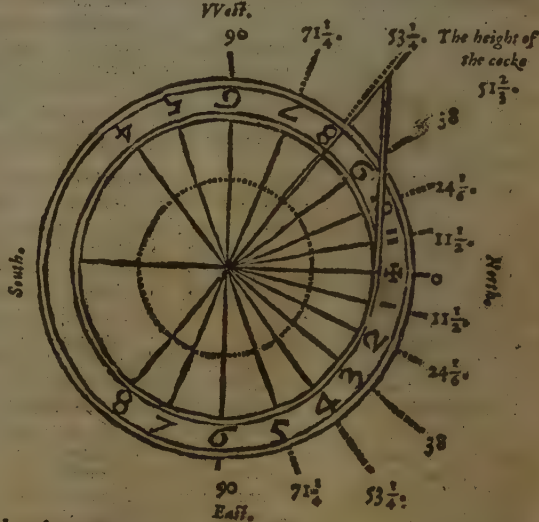 VVest.
90
71 1/4.
53 1/4.
The height of
the cocke
51 2/3.
38
24 1/6.
11 1/2.
0
11 1/2.
24 1/6.
38
53 1/4.
71 1/4
90
East.
South.
North.
4
5
6
7
8
9
10
11
✠
1
2
3
4
5
6
7
8